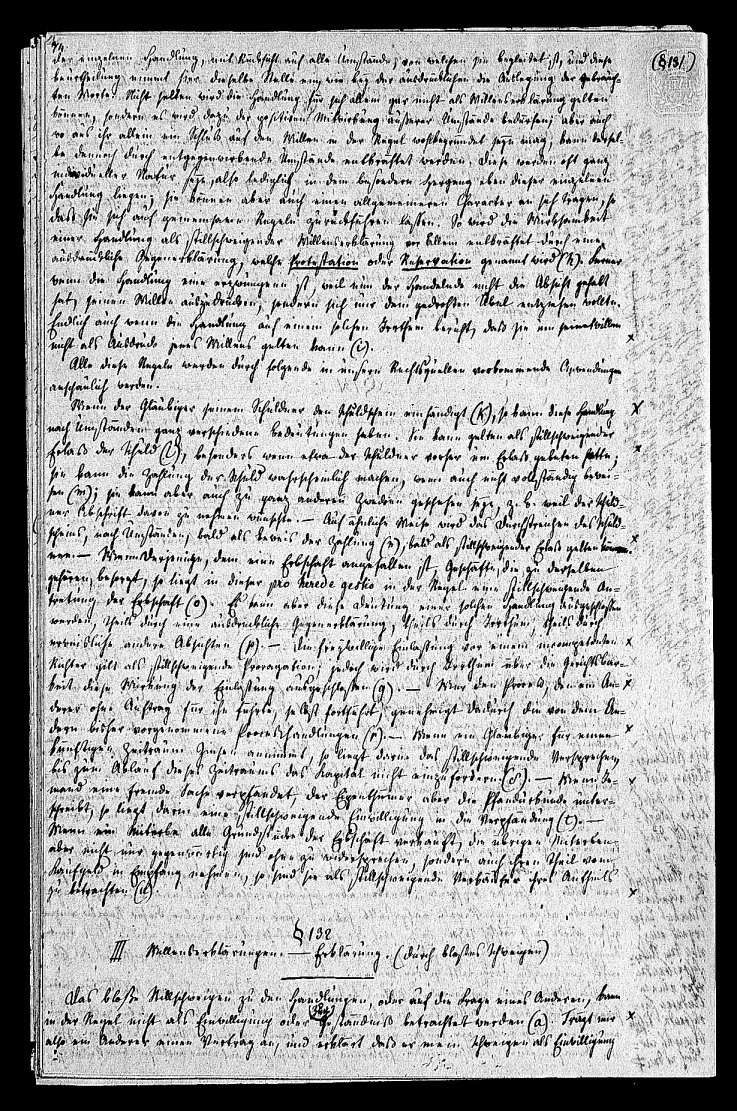 (§131.)
der einzelnen Handlung, mit Rücksicht auf alle Umstände, von welchen sie begleitet ist, und diese
Beurtheilung nimmt hier dieselbe Stelle ein, wie bey der ausdrücklichen die Auslegung der gebrauch-
ten Worte. Nicht selten wird die Handlung für sich allein gar nicht als Willenserklärung gelten
können, sondern es wird dazu der positiven Mitwirkung äußerer Umstände bedürfen; aber auch
wo aus ihr allein ein Schluß auf den Willen in der Regel wohlbegründet seyn mag, kann dersel-
be dennoch durch entgegenwirkende Umstände entkräftet werden. Diese werden oft ganz
individueller Natur seyn, also lediglich in dem besondern Hergang eben dieser einzelnen
Handlung liegen; sie können aber auch einen allgemeineren Character an sich tragen, so
daß sie sich auf gemeinsame Regeln zurückführen lassen. So wird die Wirksamkeit
einer Handlung als stillschweigender Willenserklärung vor Allem entkräftet durch eine
ausdrückliche Gegenerklärung, welche Protestation oder Reservation genannt wird (h). Ferner
wenn die Handlung eine erzwungene ist, weil nun der Handelnde nicht die Absicht gehabt
hat, seinen Willen auszudrücken, sondern sich nur dem gedrohten Übel entziehen wollte.
Endlich auch wenn die Handlung auf einem solchen Irrthum beruht, daß sie um seinetwillen
nicht als Ausdruck jenes Willens gelten kann (i).
Alle diese Regeln werden durch folgende in unsern Rechtsquellen vorkommende Anwendungen
anschaulich werden.
Wenn der Gläubiger seinem Schuldner den Schuldschein einhändigt (k), so kann diese Handlung
nach Umständen ganz verschiedene Bedeutungen haben. Sie kann gelten als stillschweigender
Erlaß der Schuld (l), besonders wenn etwa der Schuldner vorher um Erlaß gebeten hatte;
sie kann die Zahlung der Schuld wahrscheinlich machen, wenn auch nicht vollständig bewei-
sen (m); sie kann aber auch zu ganz anderen Zwecken geschehen seyn, z. B. weil der Schuld-
ner Abschrift davon zu nehmen wünschte. — Auf ähnliche Weise wird das Durchstreichen des Schuld-
scheins, nach Umständen, bald als Beweis der Zahlung (n), bald als stillschweigender Erlaß gelten
nen. — Wenn Derjenige, dem eine Erbschaft angefallen ist, Geschäfte, die zu derselben
gehören, besorgt, so liegt in dieser pro herede gestio in der Regel eine stillschweigende An-
tretung der Erbschaft (o). Es kann aber diese Deutung einer solchen Handlung ausgeschlossen
werden, theils durch eine ausdrückliche Gegenerklärung, theils durch Irrthum, theils durch
erweisliche andere Absichten (p). — Die freywillige Einlassung vor einem incompetenten
Richter gilt als stillschweigende Prorogation; jedoch wird durch Irrthum über die Gerichtsbar-
keit diese Wirkung der Einlassung ausgeschlossen (q). — Wer den Prozeß, den ein An-
derer ohne Auftrag für ihn führte, selbst fortführt, genehmigt dadurch die von dem An-
dern bisher vorgenommene Proceßhandlungen (r). — Wenn ein Gläubiger für einen
künftigen Zeitraum Zinsen annimmt, so liegt darin das stillschweigende Versprechen,
bis zum Ablauf dieses Zeitraums das Kapital nicht einzufordern (s). — Wenn Je-
mand eine fremde Sache verpfändet, der Eigenthümer aber die Pfandurkunde unter-
schreibt, so liegt darin eine stillschweigende Einwilligung in die Verpfändung (t). —
Wenn ein Miterbe alle Grundstücke der Erbschaft verkauft, die übrigen Miterben
aber nicht nur gegenwärtig sind ohne zu widersprechen, sondern auch ihren Theil vom
Kaufgeld in Empfang nehmen, so sind sie als stillschweigende Verkäufer ihres Antheils
zu betrachten (u).
§132
III Willenserklärungen. — Erklärung. (durch bloßes Schweigen)
Das bloße Stillschweigen zu den Handlungen, oder auf die Frage eines Anderen, kann
in der Regel nicht als Einwilligung oder Geständniß betrachtet werden (a). Trägt mir
also ein Anderer einen Vertrag an, und erklärt daß er mein Schweigen als Einwilligung